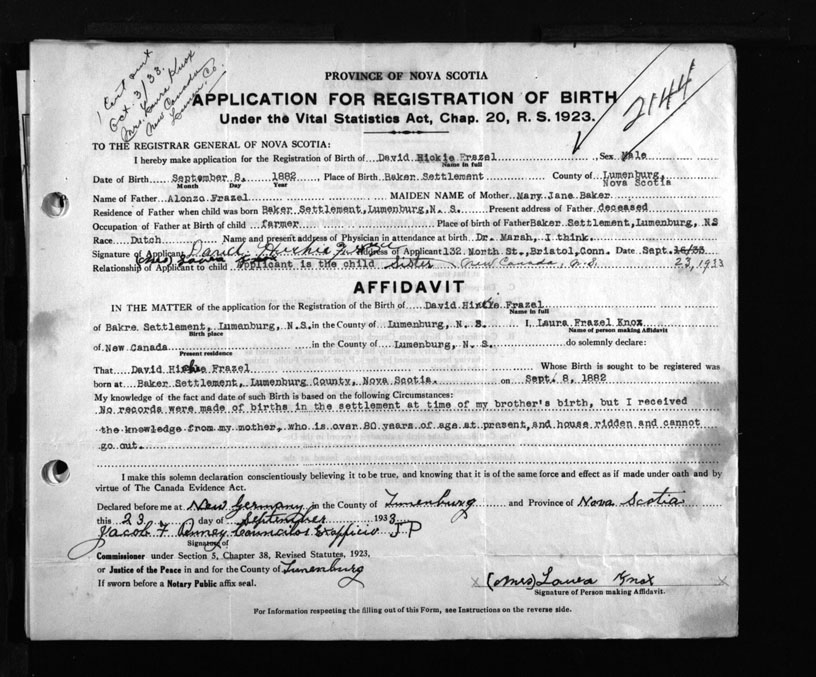 1 Cert sent
Oct. 3/33.
Mrs. Laura Knox
New Canada
Lunen. Co.
2144
PROVINCE OF NOVA SCOTIA
APPLICATION FOR REGISTRATION OF BIRTH
Under the Vital Statistics Act, Chap. 20, R. S. 1923.
TO THE REGISTRAR GENERAL OF NOVA SCOTIA:
I hereby make application for the Registration of Birth of David Hickie Frazel Sex Male
Name in full
Date of Birth September 8, 1882 Place of Birth Baker Settlement County of Lumenburg, Nova Scotia
Month Day Year
Name of Father Alonzo Frazel MAIDEN NAME of Mother Mary Jane Baker
Residence of Father when child was born Baker Settlement, Lumenburg, N. S. Present address of Father deceased
Occupation of Father at Birth of child farmer Place of birth of Father Baker Settlement, Lumenburg, N.S
Race Dutch Name and present address of Physician in attendance at birth Dr. Marsh, I think.
Signature of Applicant David Hickie Frazel Address of Applicant 132 North St., Bristol, Conn. Date Sept. 16/33
(Mrs) Laura Knox
Relationship of Applicant to child Applicant is the child Sister New Canada, N.S. 23, 1933
AFFIDAVIT
IN THE MATTER of the application for the Registration of the Birth of David Hickie Frazel
Name in full
of Bakre Settlement, Lumenburg, N.S. in the County of Lumenburg, N. S. I, Laura Frazel Knox
Birth place Name of person making Affidavit
of New Canada in the County of Lumenburg, N. S. do solemnly declare:
Present residence
That David Hickie Frazel Whose Birth is sought to be registered was
born at Baker Settlement, Lumenburg County, Nova Scotia. on Sept. 8, 1882
My knowledge of the fact and date of such Birth is based on the following Circumstances:
No records were made of births in the settlement at time of my brother's birth, but I received
the knowledge from my mother, who is over 80 years of age at present, and house ridden and cannot
go out.
I make this solemn declaration conscientiously believing it to be true, and knowing that it is of the same force and effect as if made under oath and by
virtue of The Canada Evidence Act.
Declared before me at New Germany in the County of Lunenburg and Province of Nova Scotia
this 23 day of September 1933
Jacob F Penney Councilor Exofficio J.P
Signature of
Commissioner under Section 5, Chapter 38, Revised Statutes, 1923,
or Justice of the Peace in and for the County of Lunenburg
If sworn before a Notary Public affix seal.
(Mrs) Laura Knox
Signature of Person making Affidavit.
For Information respecting the filling out of this Form, see Instructions on the reverse side.